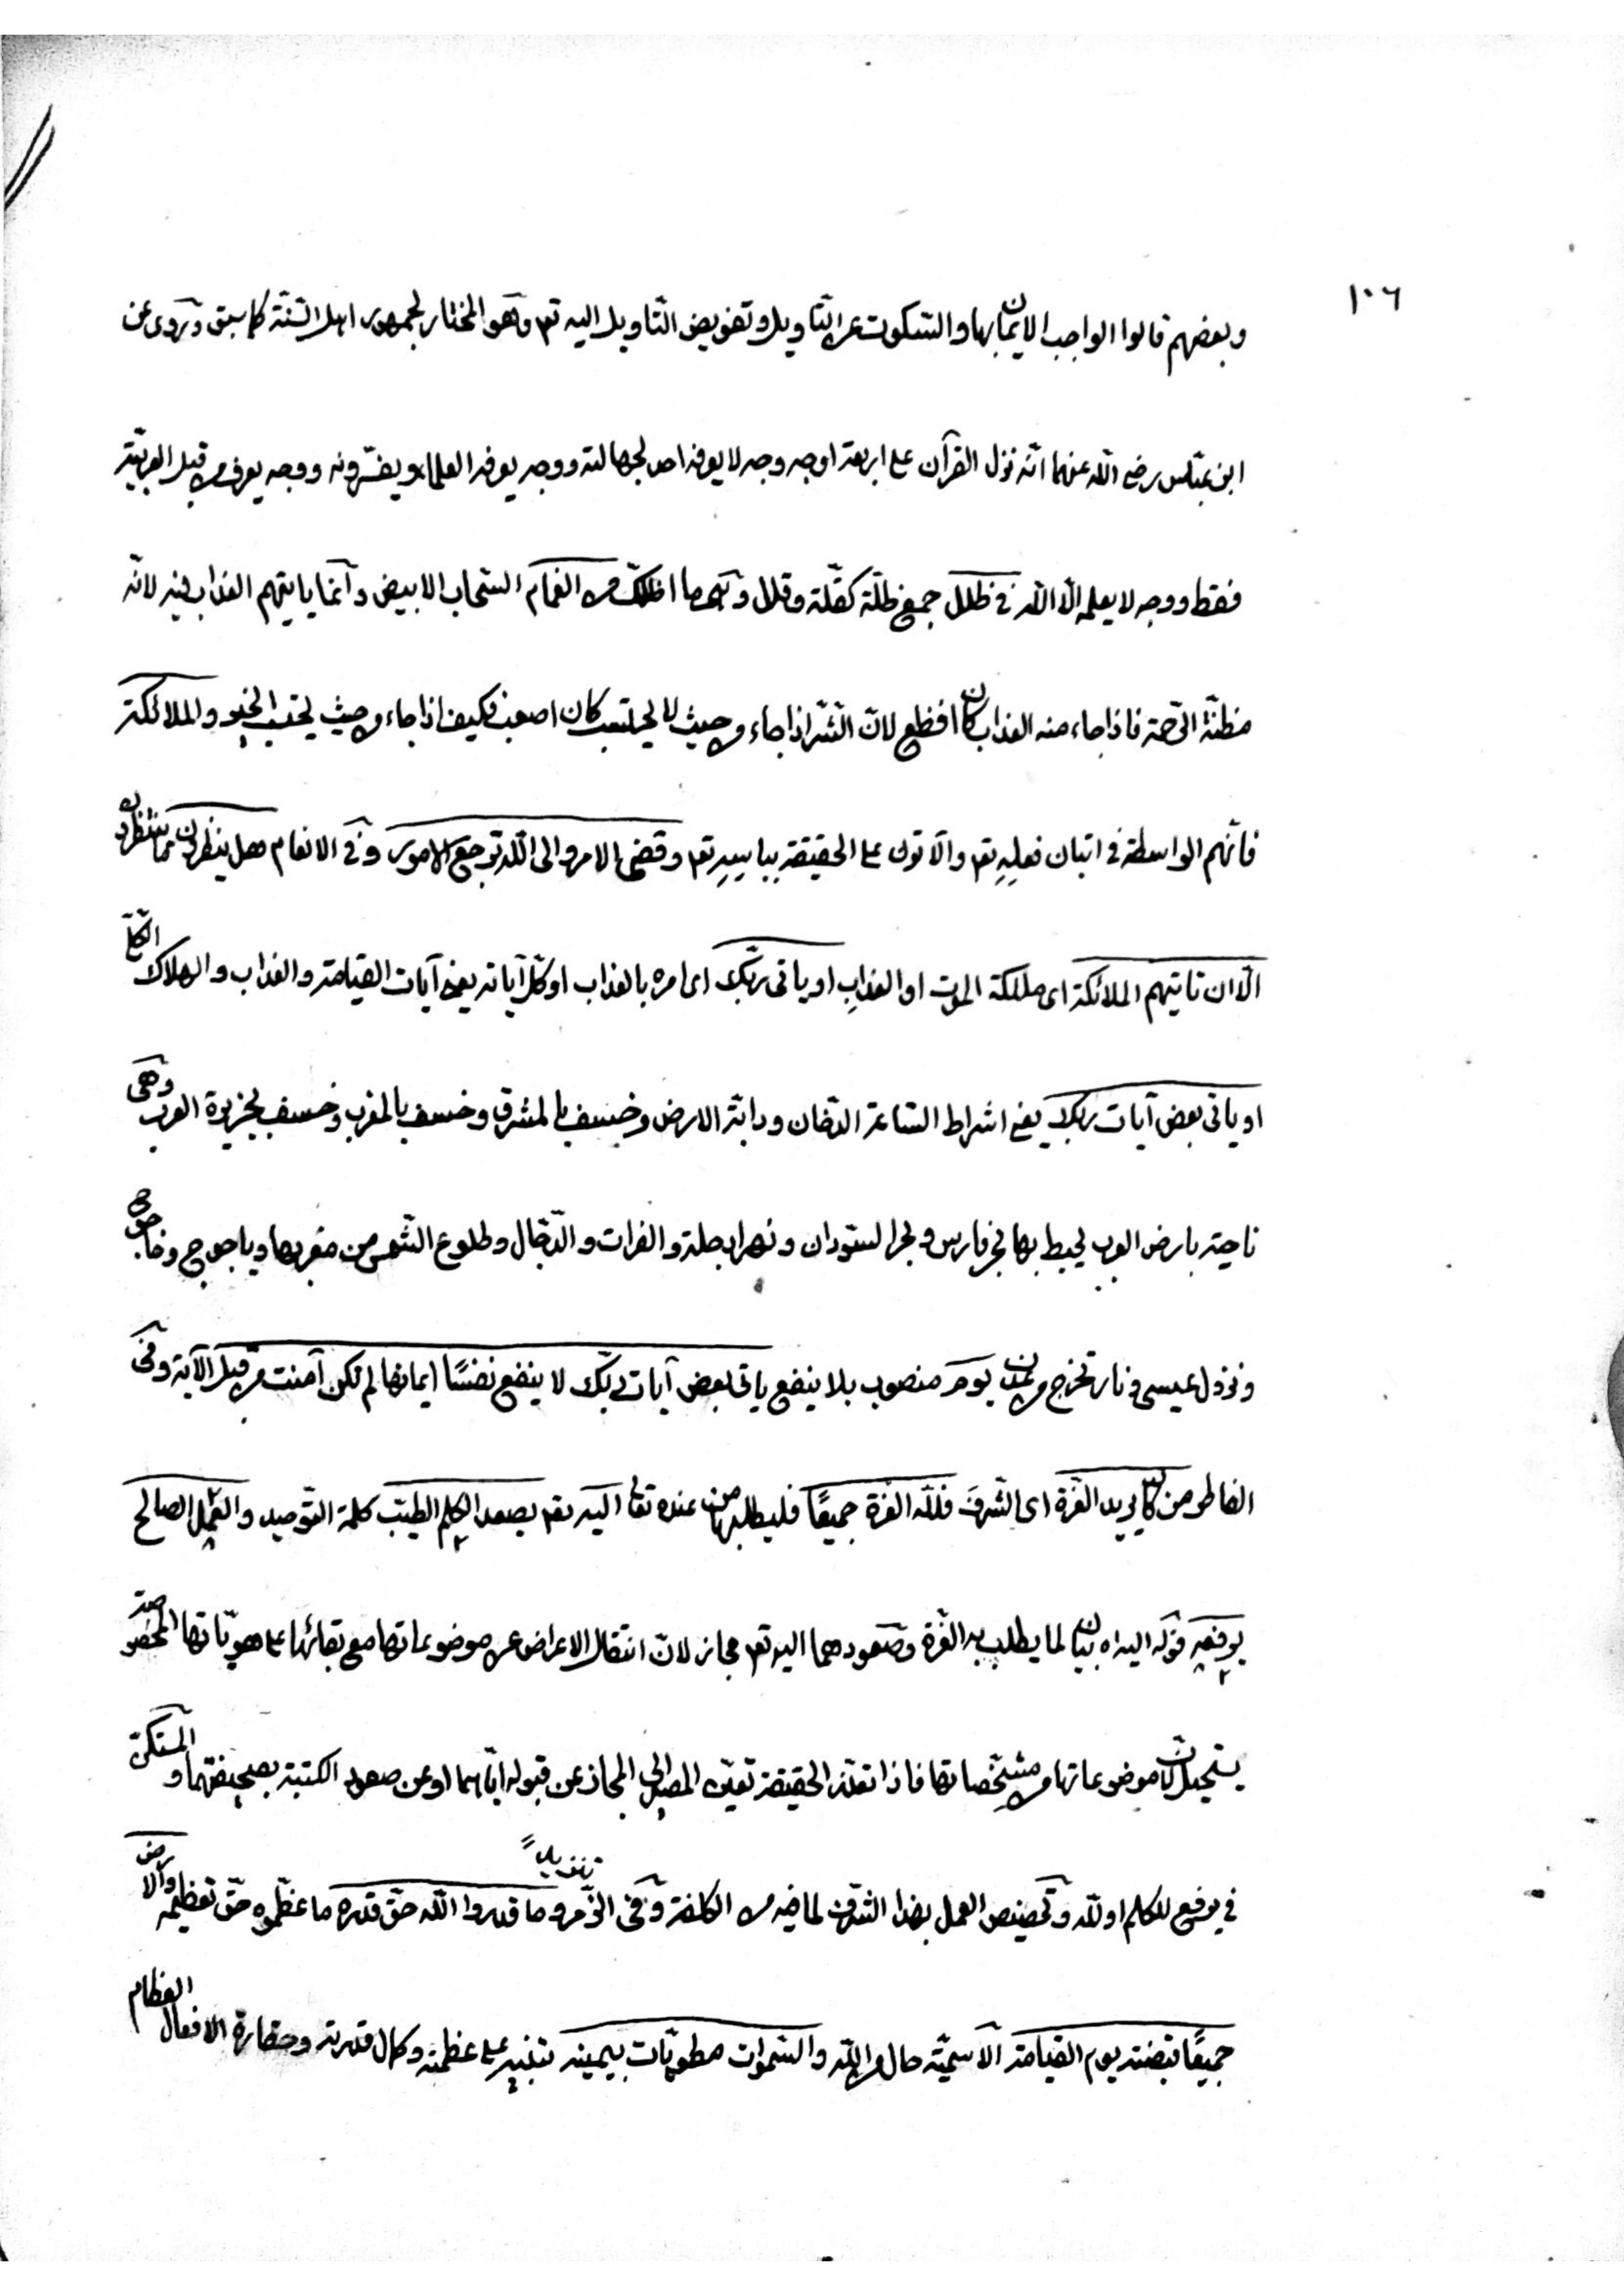 ١٠٦
وبعضهم قالوا الواجب الايمان بها والسّكوت عن التّاويل وتفويض التّاويل اليه تع وهو المختار لجمهور اهل السّنّة كما سبق وروى عن
ابن عبّاس رضى اللّه عنهما انّه نزل القرآن على اربعة اوجه وجه لا يعرفه احد لجهالته ووجه يعرفه العلماء ويفسّرونه ووجه يعرف من قبل العربيّة
فقط ووجه لا يعلمه الّا اللّه في ظلل جمع ظلّة كقلّة وقلل وهى ما اظلّك من الغمام السّحاب الابيض وانّما ياتيهم العذاب فيه لانّه
مظنّة الرّحمة فاذا جاء منه العذاب كان افظع لانّ الشّرّ اذا جاء من حيث لا يحتسب كان اصعب فكيف اذا جاء من حيث يحتسب الخير والملائكة
فانّهم الواسطة في اتيان فعله تع والآتون على الحقيقة بباسه تع وقضى الامر والى اللّه ترجع الامور وفى الانعام هل ينظرون ما ينتظرون
الّا ان تاتيهم الملائكة اى ملئكة الموت او العذاب او ياتى ربّك اى امره بالعذاب او كلّ آياته يعنى آيات القيامة والعذاب والهلاك الكلّى
او ياتى بعض آيات ربّك يعنى اشراط السّاعة الدّخان ودابّة الارض وخسف بالمشرق وخسف بالمغرب وخسف بجزيرة العرب وهى
ناحية بارض العرب يحيط بها بحر فارس وبحر السّودان ونهرا دجلة والفرات والدّجّال وطلوع الشّمس من مغربها وياجوج وماجوج
ونزول عيسى ونار تخرج من عدن يوم منصوب بلا ينفع ياتى بعض آيات ربّك لا ينفع نفسًا ايمانها لم تكن آمنت من قبل الآية وفى
الفاطر من كان يريد العزّة اى الشّرف فللّه العزّة جميعًا فليطلبها من عنده تعالى اليه تع يصعد الكلم الطيّب كلمة التّوحيد والعمل الصالح
يرفعه قوله اليه اه بيان لما يطلب به العزّة وصعودهما اليه تع مجاز لانّ انتقال الاعراض عن موضوعاتها مع بقائها على هويّاتها المخصوصة
يستحيل لانّ موضوعاتها من مشخّصاتها فاذا تعذّر الحقيقة تعيّن المصير الى المجاز عن قبوله ايّاهما او عن صعود الكتبة بصحيفتهما والمستكنّ
في يرفع للكلم او للّه وتخصيص العمل بهذا الشّرف لما فيه من الكلفة وفى الزّمر وما قدروا اللّه حقّ قدره ما عظّموه حقّ تعظيمه والارض
تنزيلًا
جميعًا قبضته يوم القيامة الاسميّة حال من اللّه والسّموات مطويّات بيمينه تنبيه على عظمته وكمال قدرته وحقارة الافعال العظام